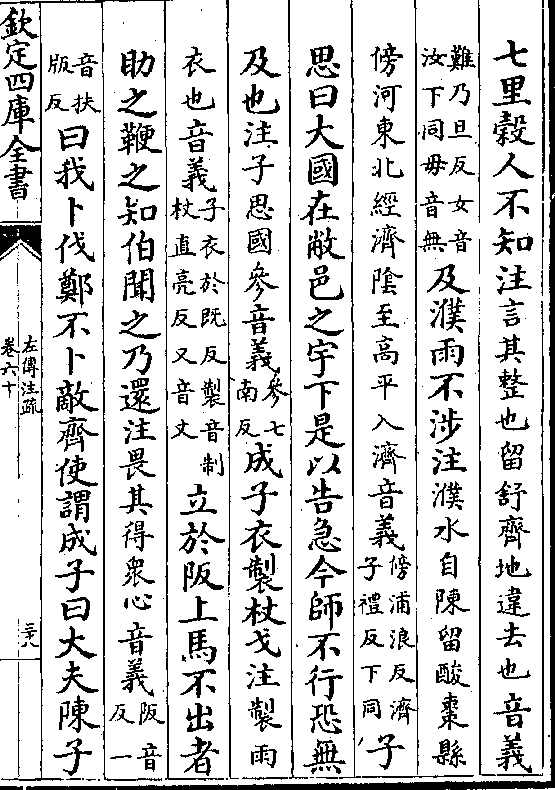 七里穀人不知注言其整也留舒齊地違去也音義
難乃旦反女音汝下同毋音無及濮雨不涉注濮水自陳留酸棗縣
傍河東北經濟陰至高平入濟音義傍浦浪反濟子禮反下同子
思曰大國在敝邑之宇下是以告急今師不行恐無
及也注子思國參音義參七南反成子衣製杖戈注製雨
衣也音義子衣於既反製音制杖直亮反又音丈立於阪上馬不出者
助之鞭之知伯聞之乃還注畏其得衆心音義阪音反一
音扶版反曰我卜伐鄭不卜敵齊使謂成子曰大夫陳子
欽定四庫全書
左傳注疏
卷六十
三十八